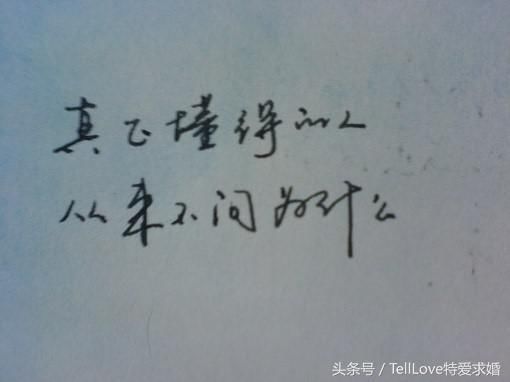 真正懂得的人
从来不问为什么
头条号 / TellLove特爱求婚